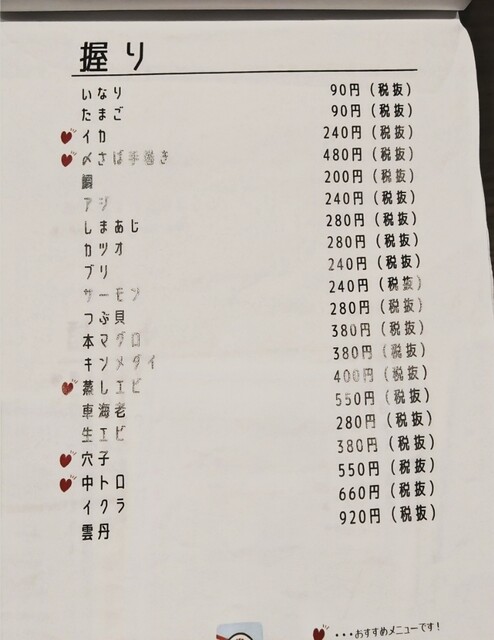 握り
いなり 90円（税抜）
たまご 90円（税抜）
イカ 240円（税抜）
〆さば手巻き 480円（税抜）
鯛 200円（税抜）
アジ 240円（税抜）
しまあじ 280円（税抜）
カツオ 280円（税抜）
ブリ 240円（税抜）
サーモン 240円（税抜）
つぶ貝 280円（税抜）
本マグロ 380円（税抜）
キンメダイ 380円（税抜）
蒸しエビ 400円（税抜）
車海老 550円（税抜）
生エビ 280円（税抜）
穴子 380円（税抜）
中トロ 550円（税抜）
イクラ 660円（税抜）
雲丹 920円（税抜）
・・・おすすめメニューです！